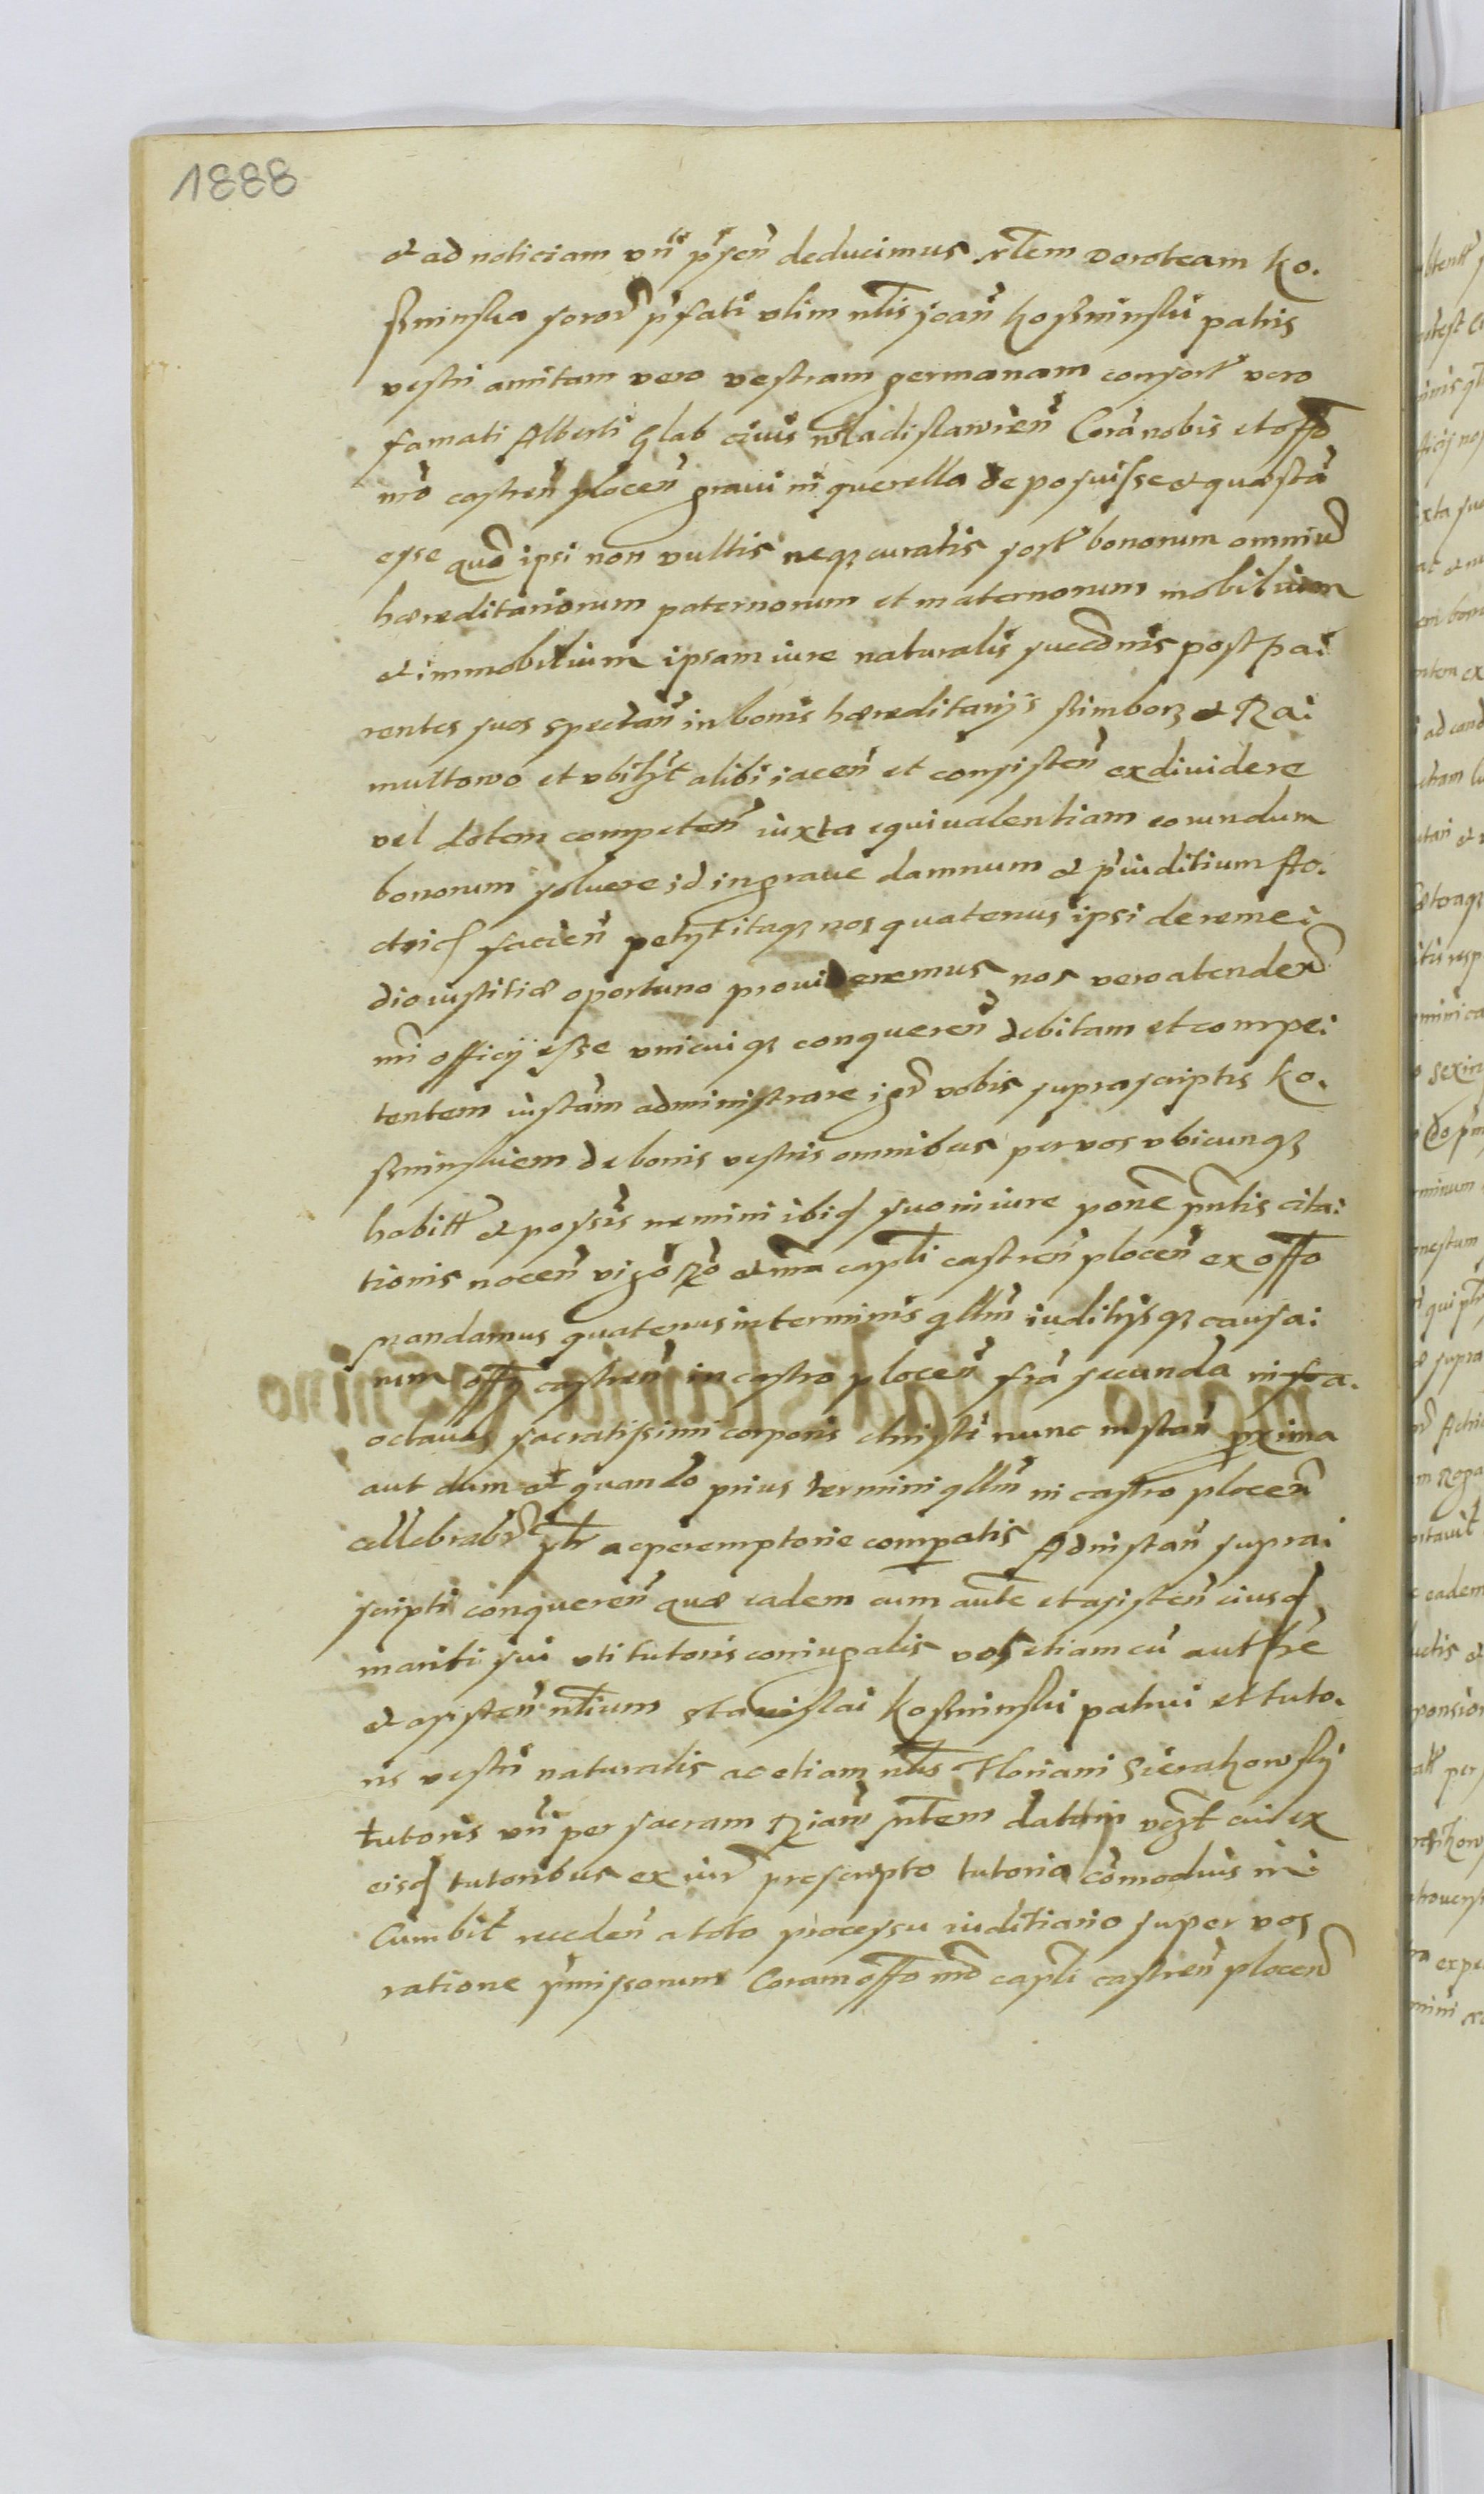 1888
et ad noticiam vrã pñsen deducimus nlem Doroteam Ko.
ßminska soror pfati olim nlis Joan Koßminski patris
vestri amitam vero vestram germanam consort vero
famati Alberti Glab civis wladislavien Corã nobis et offo
nrõ castren plocen gravi in querella deposuisse et quæstã
esse quõ ipsi non vultis neqz curatis sort bonorum omniu
hæreditariorum paternorum et maternorum mobilium
et immobilium ipsam iure naturalis succõnis post pa:
rentes suos spectan in bonis hæreditarijs stimborz et Ra:
multowo et vbilzt alibi iacen et consisten exdividere
vel dotem competen iuxta equivalentiam eorundum
bonorum solvere id in grave damnum et piuditium Ac.
tricis facien petyt itaqz nos quatenus ipsi de reme:
dio iustitiæ oportuno provideremus nos vero atender
nri officij esse vnicuiqz conqueren debitam et compe:
tentem iustam administrare igr vobis suprascriptis Ko.
ßminskiem de bonis vestris omnibus per vos vbicunqz
habitt et possis nemini ibid suo in iure pone pntis cita:
tionis nocen vigõ Rõ et mã capli castren plocen ex offo
mandamus quatenus in terminis qllm iuditijsqz causa:
rum offy castren in castro plocen fra secunda infra.
octavas sacratissimi corporis christi nunc instan proxima
aut dum et quando prius termini qllm in castro plocen
cellebrabr plr ac peremptorie compatis Ad instan supra:
scripti conqueren quæ eadem cum aute et asisten eiusd
mariti sui vti tutoris coniugalis vos etiam cu authe
et asisten nlium stanislai Koßminski patrui et tuto.
ris vestri naturalis ac etiam nlis Floriani Sierakowsky
tutoris vri per sacram Riam mtem dattin vczt cui ex
eisd tutoribus ex iur prescripto tutoria comodius in:
Cumbit receden a toto processu iuditiario super vos
ratione pmissorum Coram offo nrõ capli castren plocen